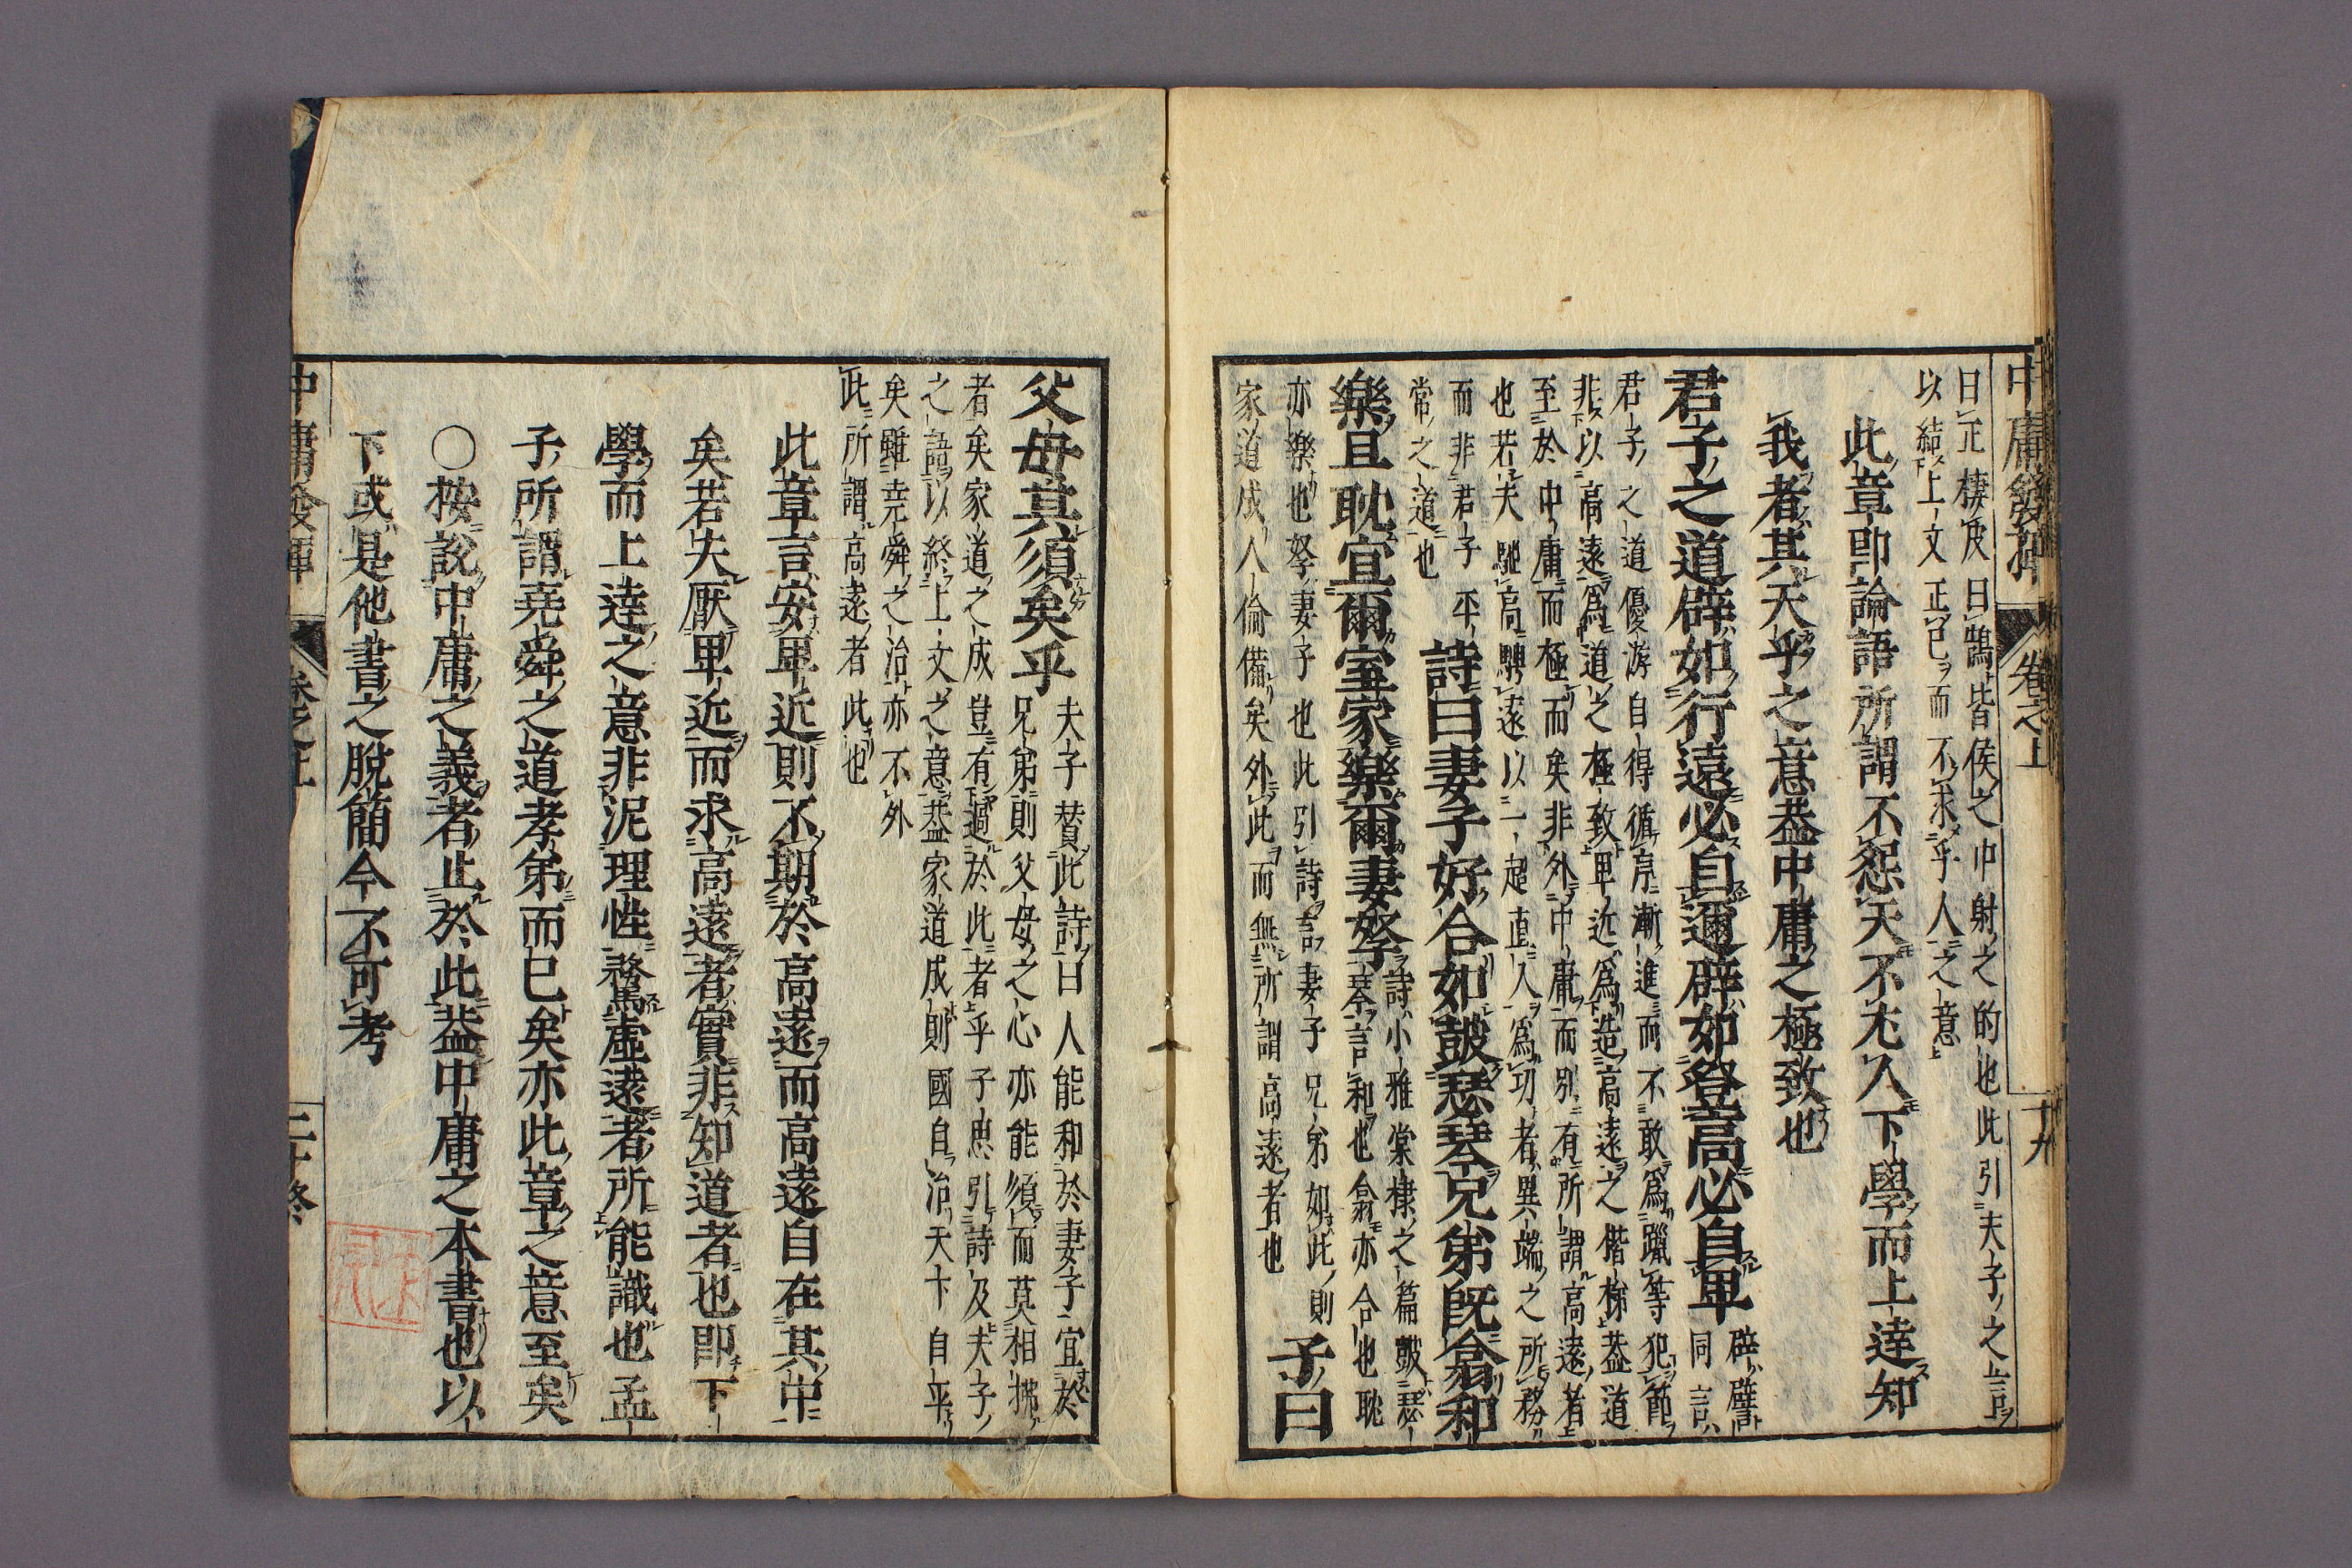 中庸發揮 卷之上 十九
曰正棲皮曰鵠皆侯之中射之的也此引夫子之言
以結上文正己而不求乎人之意
此章即論語所謂不怨天不尤人下學而上達知
我者其天乎之意葢中庸之極致也
君子之道辟如行遠必自邇辟如登高必自卑
辟譬
同言
君子之道優游自得循序漸進而不敢為躐等犯節
非以高遠為道之極致卑近為造高遠之階梯葢道
至於中庸而極而矣非外中庸而別有所謂高遠者
也若夫馳高騁遠以一超直入為功者異端之所務
而非君子平
常之道也
詩曰妻子好合如鼓瑟琴兄弟既翕和
樂且耽宜爾室家樂爾妻孥
詩小雅棠棣之篇鼓瑟
琴言和也翕亦合也耽
亦樂也孥妻子也此引詩言妻子兄弟如此則
家道成人倫備矣外此而無所謂高遠者也
子曰
父母其須矣乎
夫子賛此詩曰人能和於妻子宜於
兄弟則父母之心亦能須而莫相拂
者矣家道之成豈有過於此者乎子思引詩及夫子
之語以終上文之意葢家道成則國自治天下自平
矣雖堯舜之治亦不外
此所謂高遠者此也
此章言安卑近則不期於高遠而高遠自在其中
矣若夫厭卑近而求高遠者實非知道者也即下
學而上達之意非泥理性騖虛遠者所能識也孟
子所謂堯舜之道孝弟而已矣亦此章之意至矣
○按說中庸之義者止於此葢中庸之本書也以
下或是他書之脫簡今不可考
中庸發揮 卷之上 二十終